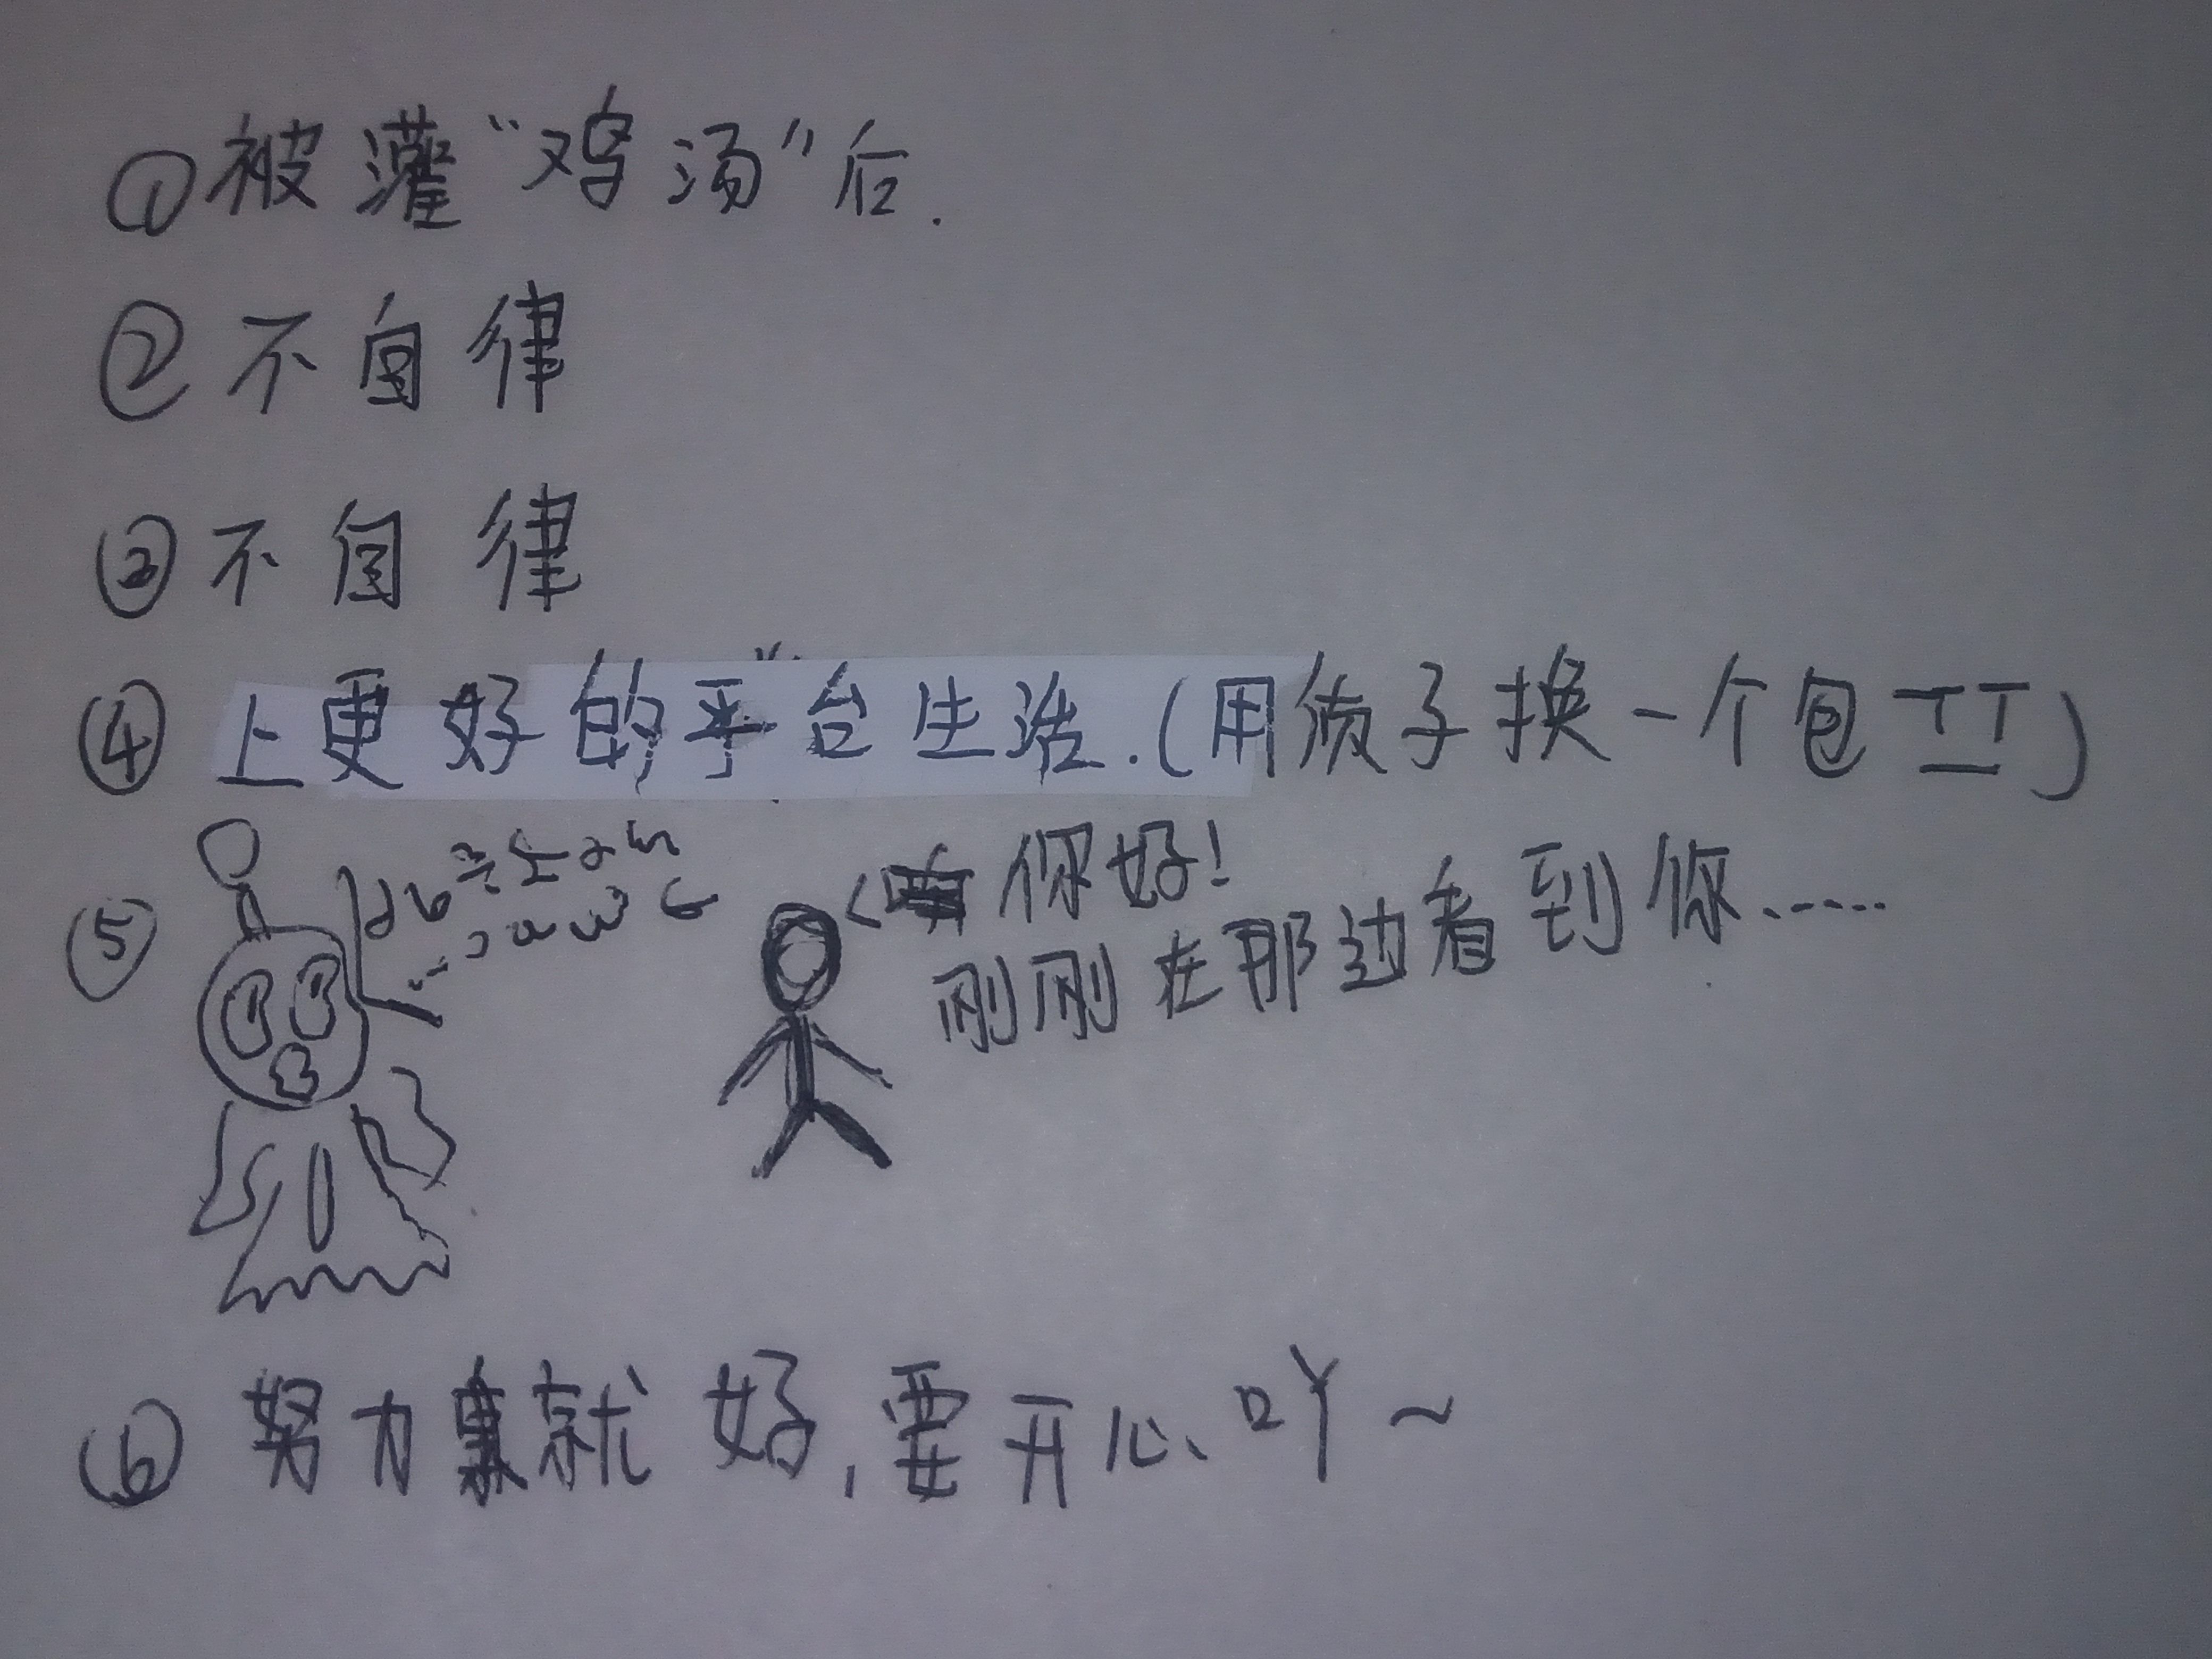 ①被灌“鸡汤”后.
②不自律
③不自律
④上更好的平台生活.(用孩子换一个包TT)
⑤
你好!
刚刚在那边看到你......
⑥努力就好,要开心吖~